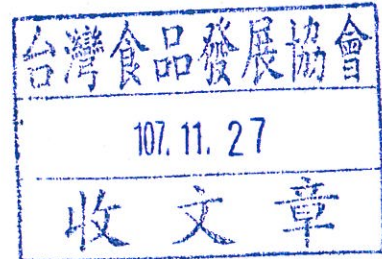 台灣食品發展協會
107.11.27
收文章